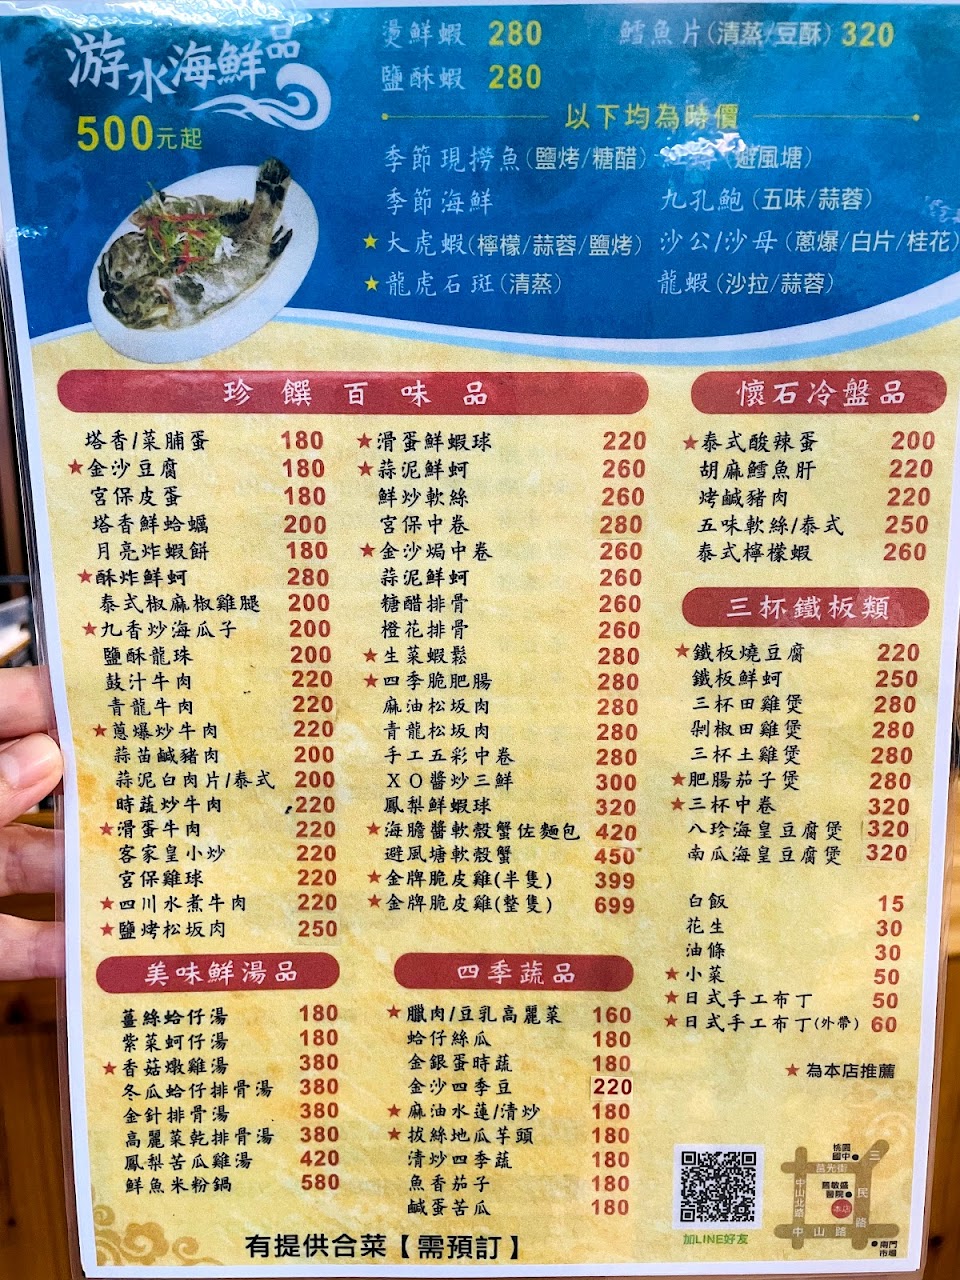 游水海鮮品
500元起
燙鮮蝦 280
鱈魚片(清蒸/豆酥) 320
鹽酥蝦 280
以下均為時價
季節現撈魚(鹽烤/糖醋)
(避風塘)
季節海鮮
九孔鮑(五味/蒜蓉)
★大虎蝦(檸檬/蒜蓉/鹽烤)
沙公/沙母(蔥爆/白片/桂花)
★龍虎石斑(清蒸)
龍蝦(沙拉/蒜蓉)
珍饌百味品
塔香/菜脯蛋 180
★金沙豆腐 180
宮保皮蛋 180
塔香鮮蛤蠣 200
月亮炸蝦餅 180
★酥炸鮮蚵 280
泰式椒麻椒雞腿 200
★九香炒海瓜子 200
鹽酥龍珠 200
鼓汁牛肉 220
青龍牛肉 220
★蔥爆炒牛肉 220
蒜苗鹹豬肉 200
蒜泥白肉片/泰式 200
時蔬炒牛肉 220
★滑蛋牛肉 220
客家皇小炒 220
宮保雞球 220
★四川水煮牛肉 220
★鹽烤松坂肉 250
★滑蛋鮮蝦球 220
★蒜泥鮮蚵 260
鮮炒軟絲 260
宮保中卷 280
★金沙焗中卷 260
蒜泥鮮蚵 260
糖醋排骨 260
橙花排骨 260
★生菜蝦鬆 280
★四季脆肥腸 280
麻油松坂肉 280
青龍松坂肉 280
手工五彩中卷 280
XO醬炒三鮮 300
鳳梨鮮蝦球 320
★海膽醬軟殼蟹佐麵包 420
避風塘軟殼蟹 450
★金牌脆皮雞(半隻) 399
★金牌脆皮雞(整隻) 699
懷石冷盤品
★泰式酸辣蛋 200
胡麻鱈魚肝 220
烤鹹豬肉 220
五味軟絲/泰式 250
泰式檸檬蝦 260
三杯鐵板類
★鐵板燒豆腐 220
鐵板鮮蚵 250
三杯田雞煲 280
剁椒田雞煲 280
三杯土雞煲 280
★肥腸茄子煲 280
★三杯中卷 320
八珍海皇豆腐煲 320
南瓜海皇豆腐煲 320
白飯 15
花生 30
油條 30
★小菜 50
★日式手工布丁 50
★日式手工布丁(外帶) 60
★為本店推薦
美味鮮湯品
薑絲蛤仔湯 180
紫菜蚵仔湯 180
★香菇燉雞湯 380
冬瓜蛤仔排骨湯 380
金針排骨湯 380
高麗菜乾排骨湯 380
鳳梨苦瓜雞湯 420
鮮魚米粉鍋 580
四季蔬品
★臘肉/豆乳高麗菜 160
蛤仔絲瓜 180
金銀蛋時蔬 180
金沙四季豆 220
★麻油水蓮/清炒 180
★拔絲地瓜芋頭 180
清炒四季蔬 180
魚香茄子 180
鹹蛋苦瓜 180
有提供合菜【需預訂】
加LINE好友
桃園國中
三民路
莒光街
中山北路
敏盛醫院
本店
中山路
南門市場